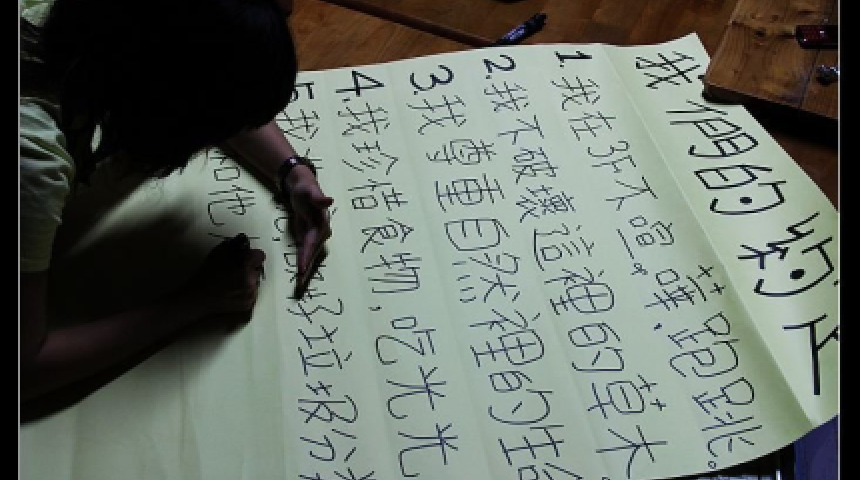 我們的約定
1.我在3F不喧嘩、跑跳。
2.我不破壞這裡的草木
3.我尊重自然裡的生命
4.我珍惜食物,吃光光
5.我 好垃圾分類
和他